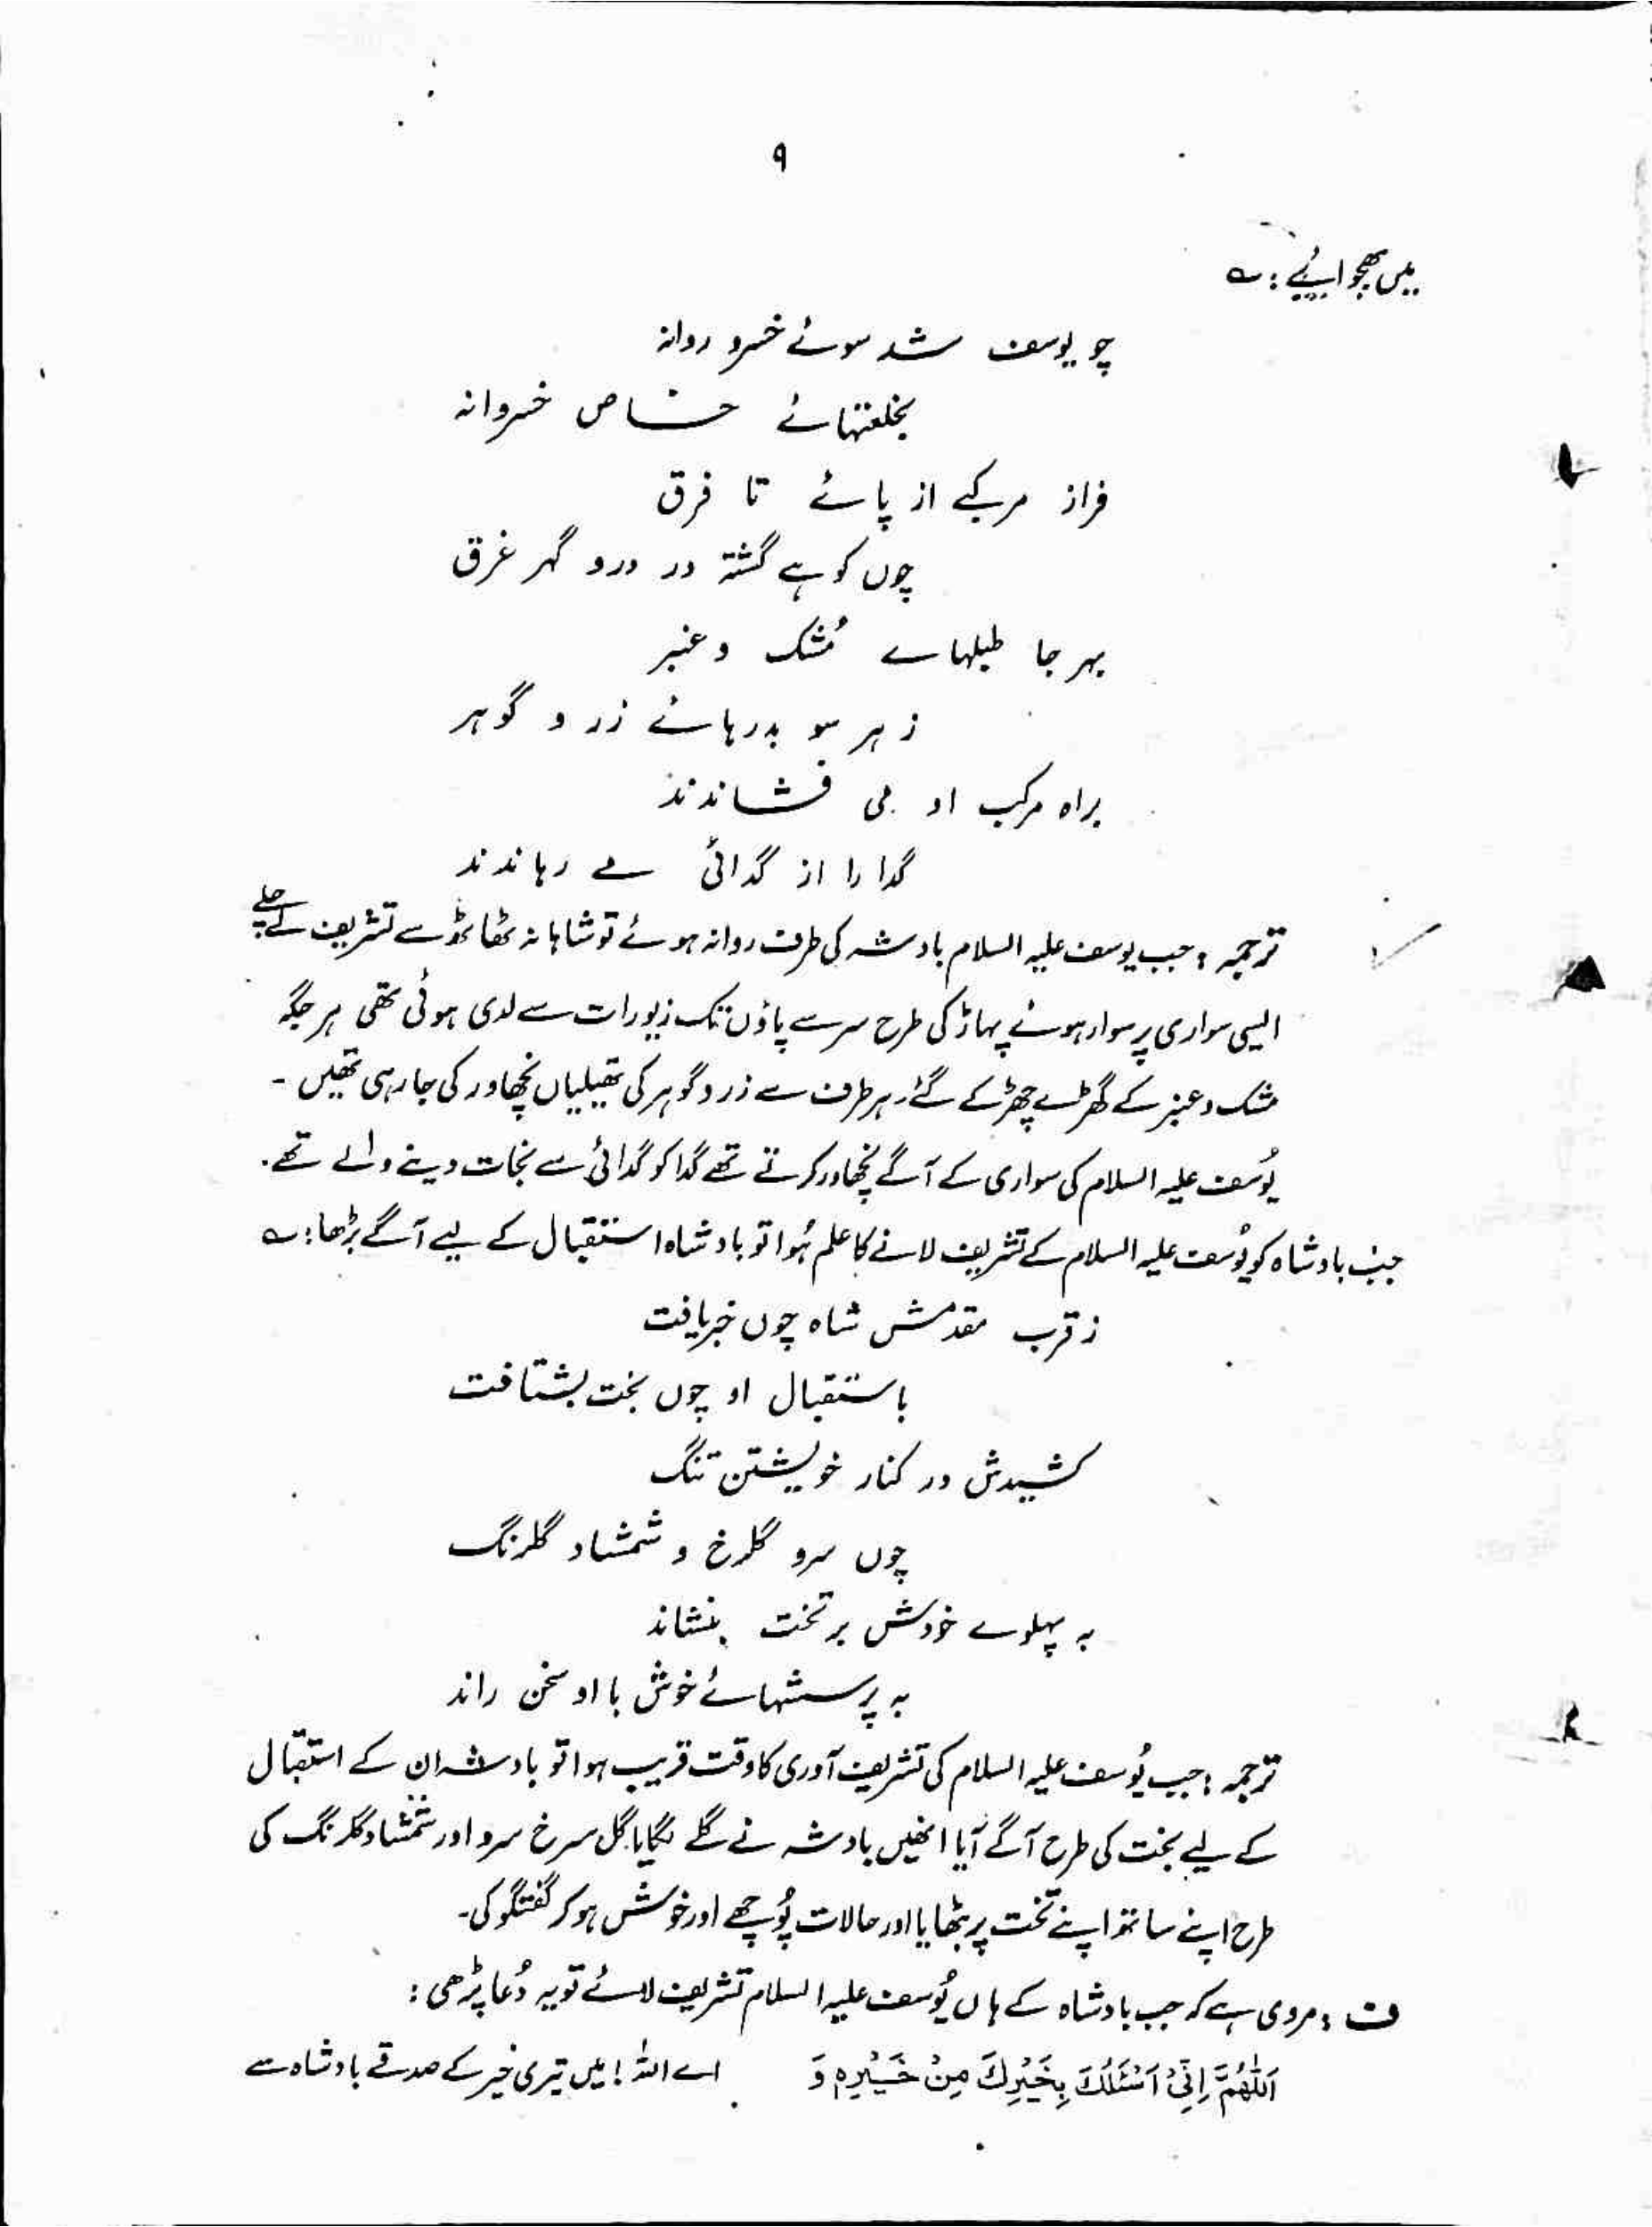 ۹
میں بھجوائیے : ؎
چو یوسف شد سوئے خسرو روانہ
بخلعتہائے خاص خسروانہ
فراز مرکبے از پائے تا فرق
چوں کوہے گشتہ در درو گہر غرق
بہر جا طبلہاے مُشک و عنبر
ز ہر سو بدرہائے زر و گوہر
براہ مرکب او می فشاندند
گدا را از گدائی مے رہاندند
ترجمہ : جب یوسف علیہ السلام بادشہ کی طرف روانہ ہوئے تو شاہانہ ٹھاٹھ سے تشریف لے چلے
ایسی سواری پر سوار ہوئے پہاڑ کی طرح سر سے پاؤں تک زیورات سے لدی ہوئی تھی ہر جگہ
مشک و عنبر کے گھڑے چھڑکے گئے، ہر طرف سے زر و گوہر کی تھیلیاں نچھاور کی جا رہی تھیں ۔
یُوسف علیہ السلام کی سواری کے آگے نچھاور کرتے تھے گدا کو گدائی سے نجات دینے والے تھے۔
جب بادشاہ کو یُوسف علیہ السلام کے تشریف لانے کا علم ہُوا تو بادشاہ استقبال کے لیے آگے بڑھا : ؎
ز قرب مقدمش شاہ چوں خبر یافت
باستقبال او چوں بخت بشتافت
کشیدش در کنار خویشتن تنگ
چوں سرو گلرخ و شمشاد گلرنگ
بہ پہلوے خودش بر تخت بنشاند
بہ پرسشہائے خوش با او سخن راند
ترجمہ : جب یُوسف علیہ السلام کی تشریف آوری کا وقت قریب ہوا تو بادشہ ان کے استقبال
کے لیے بخت کی طرح آگے آیا انھیں بادشہ نے گلے لگایا گل سرخ سرو اور شمشاد گلرنگ کی
طرح اپنے ساتھ اپنے تخت پر بٹھایا اور حالات پُوچھے اور خوش ہو کر گفتگو کی۔
ف : مروی ہے کہ جب بادشاہ کے ہاں یُوسف علیہ السلام تشریف لائے تو یہ دُعا پڑھی :
اَللّٰھُمَّ اِنِّیْ اَسْئَلُكَ بِخَیْرِكَ مِنْ خَیْرِہٖ وَ اے اللہ ! میں تیری خیر کے صدقے بادشاہ سے